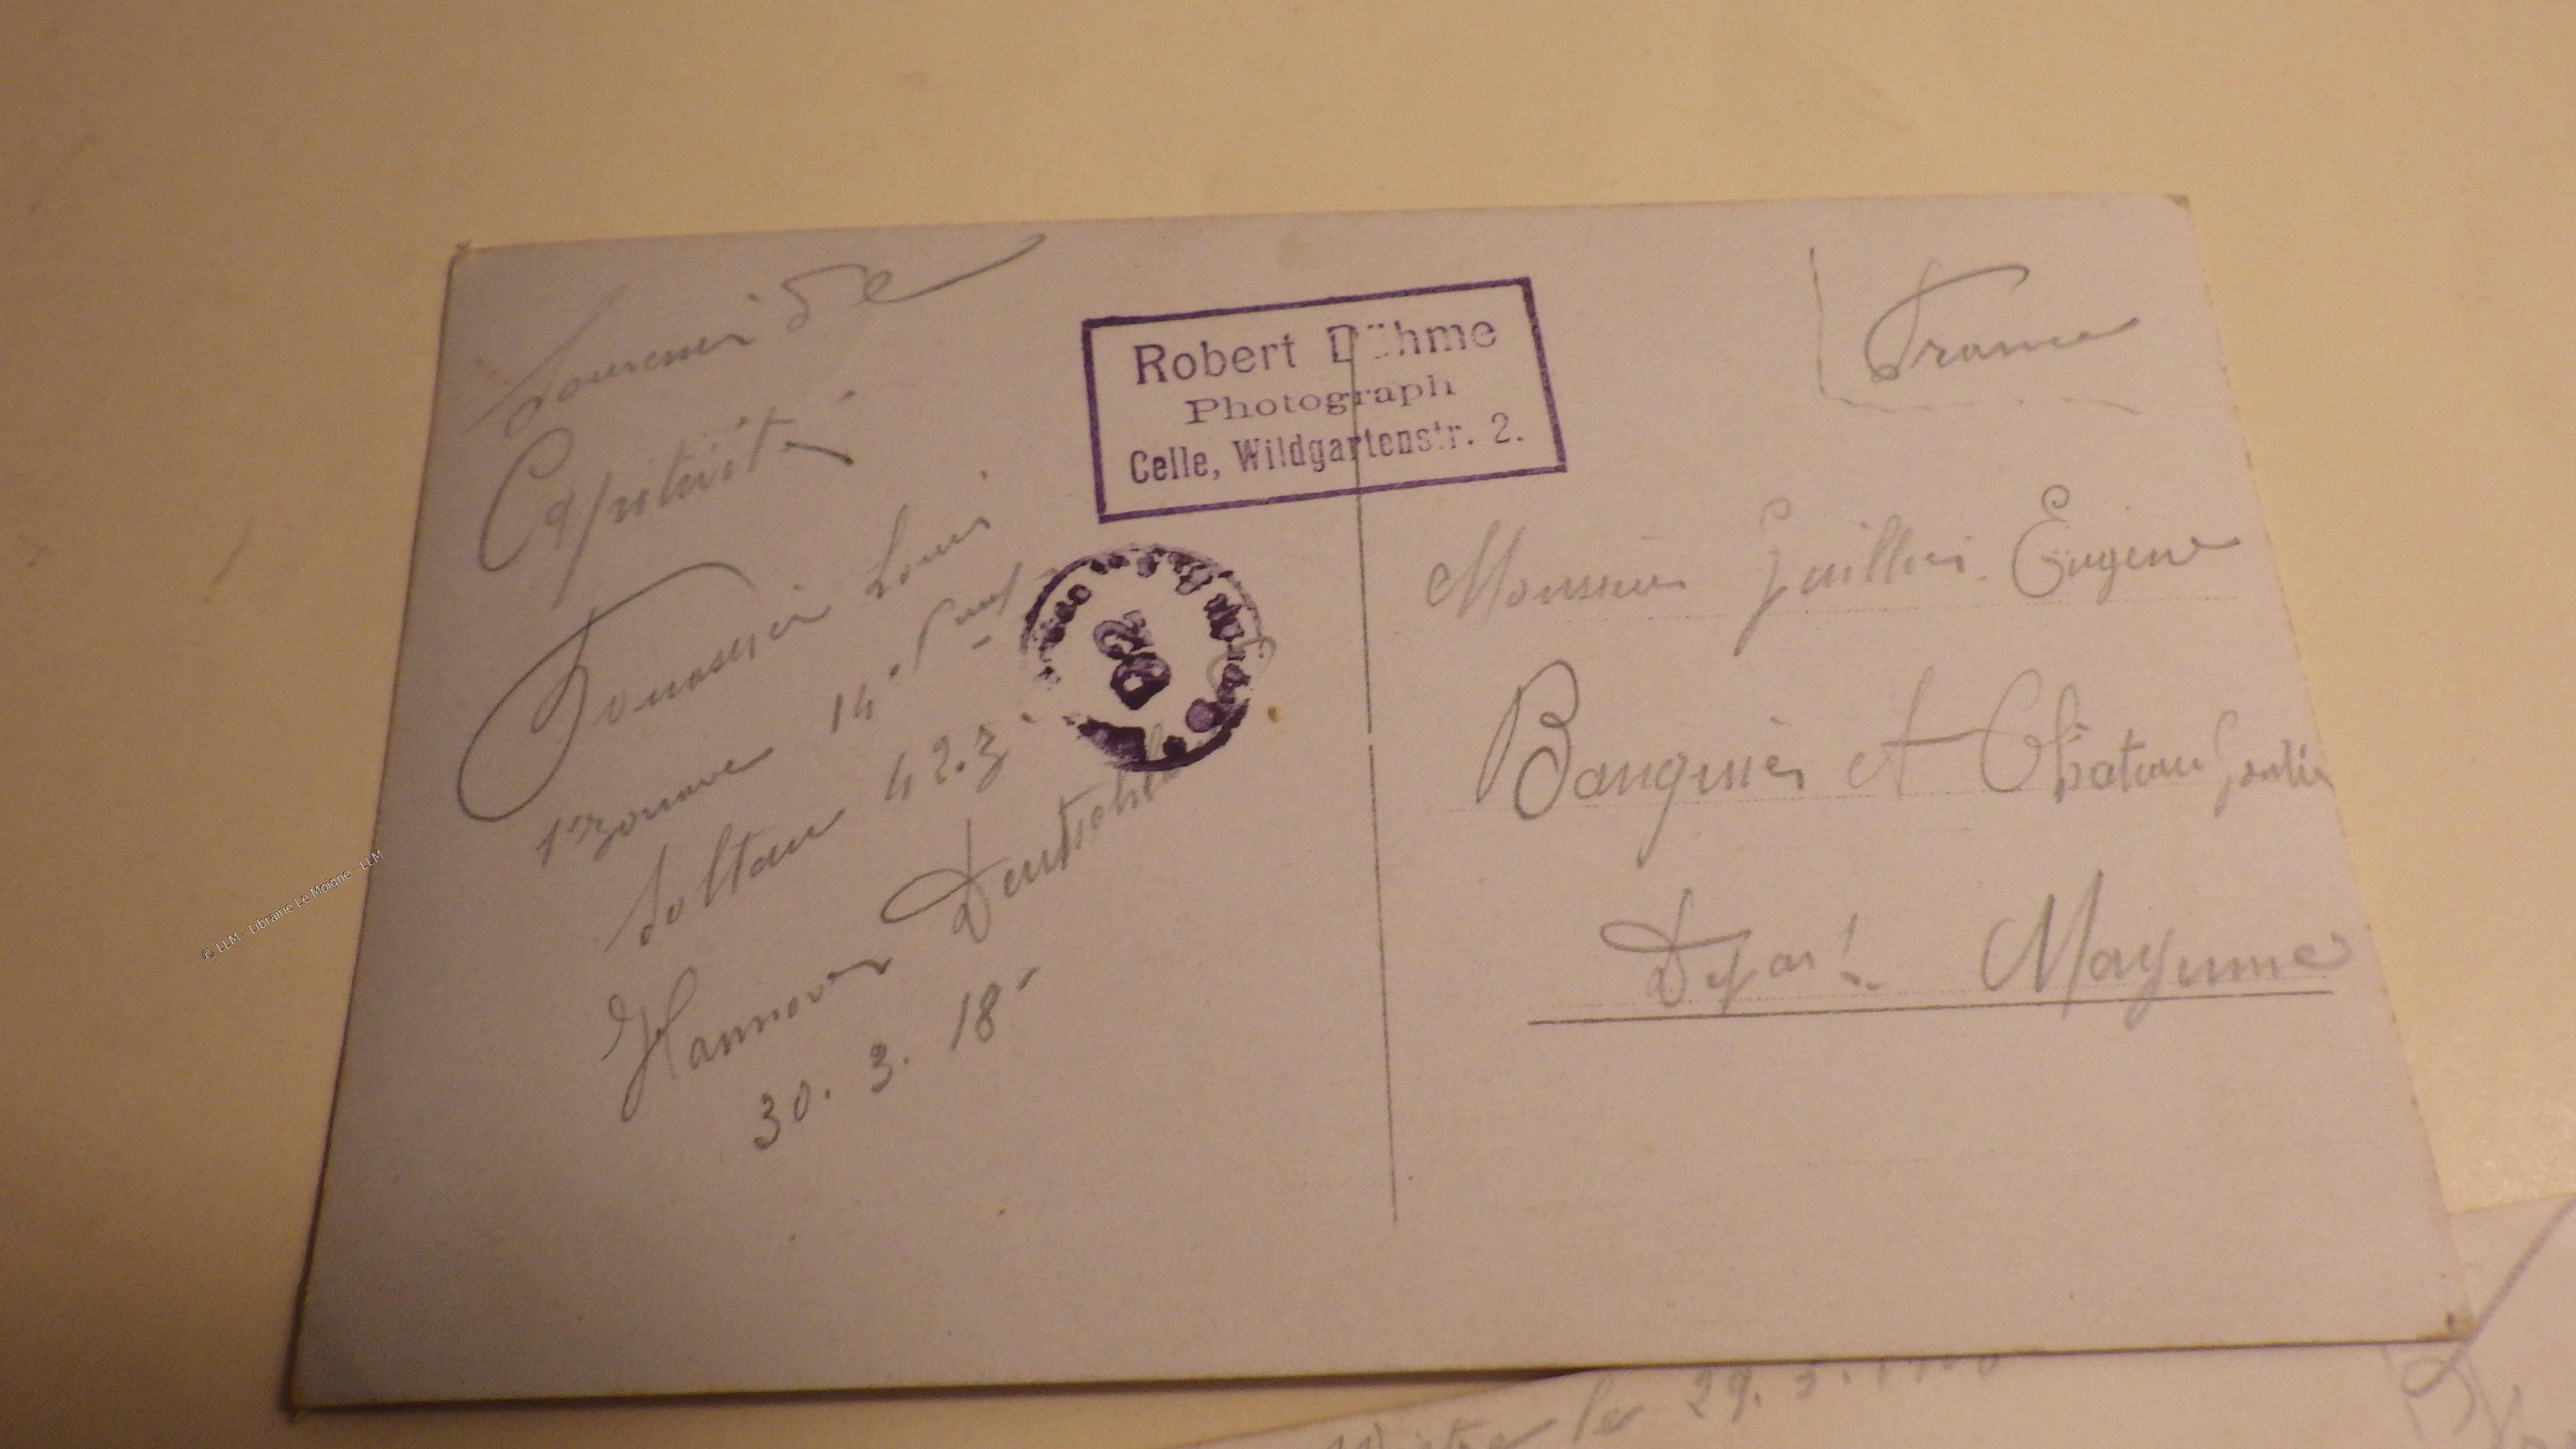 Souvenir de
Captivité
Louis
1er zouave 14e
Soltau 42.3
Hannover Deutschl
30. 3. 18
Robert Döhme
Photograph
Celle, Wildgartenstr. 2.
France
Monsieur Eugène
Banquier et Château Gontier
Depart. Mayenne
le 29. 3.
© LLM - Librairie Le Moigne - LLM